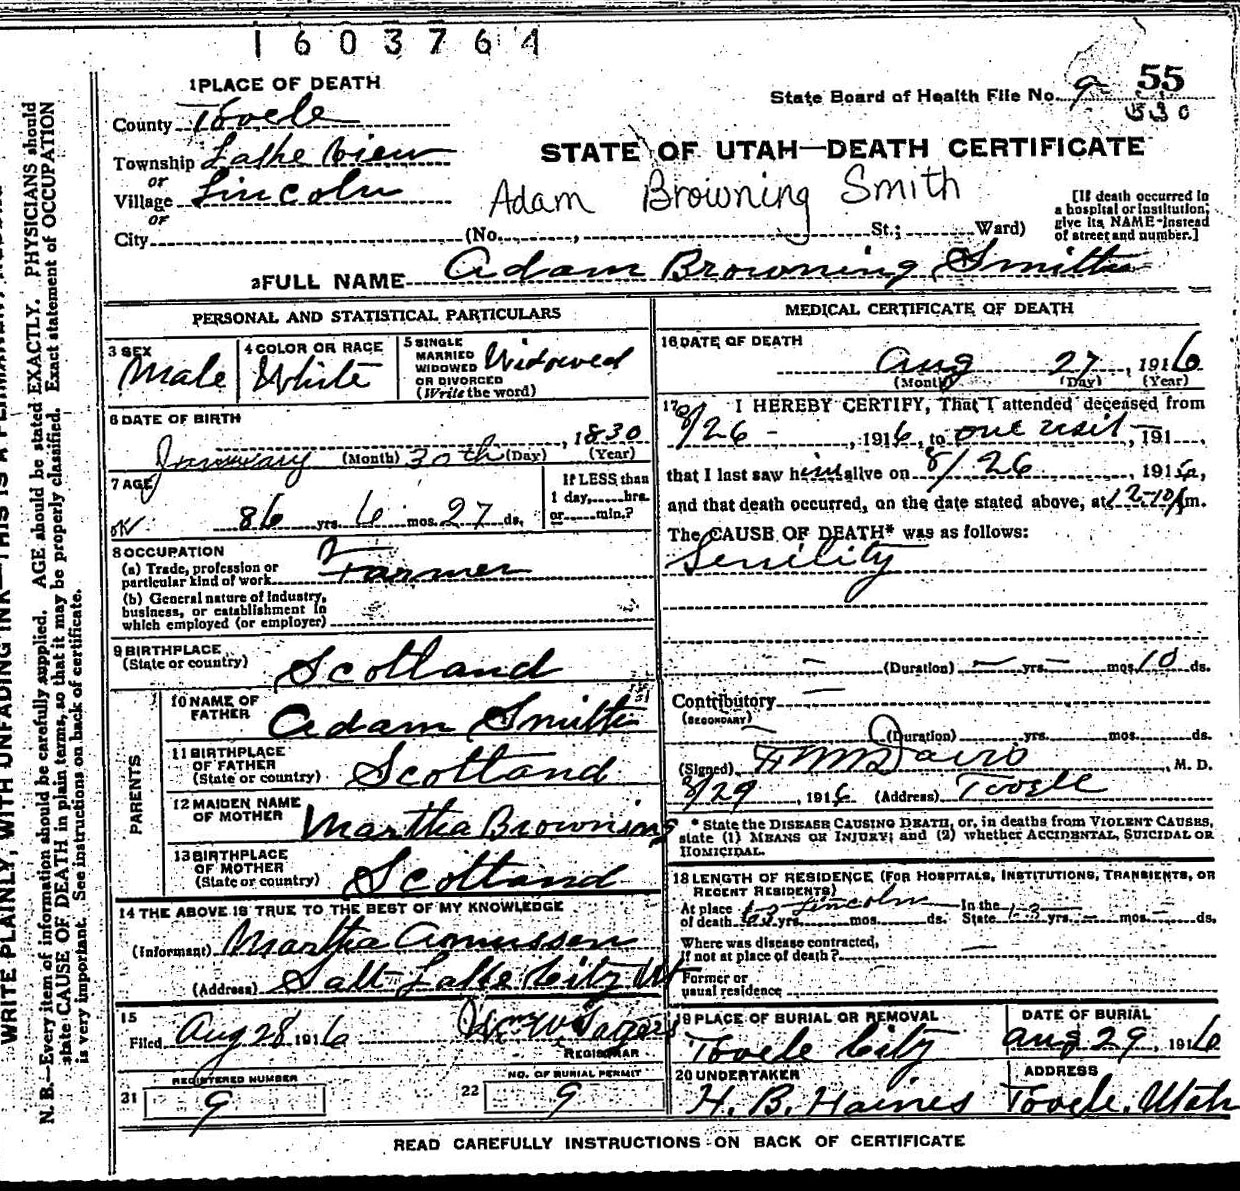 1603764
1 PLACE OF DEATH
State Board of Health File No. 9 55
530
County Tooele
Township Lake View
or
Village Lincoln
or
City (No. , St.; Ward)
STATE OF UTAH—DEATH CERTIFICATE
Adam Browning Smith
[If death occurred in a hospital or institution, give its NAME instead of street and number.]
2 FULL NAME Adam Browning Smith
PERSONAL AND STATISTICAL PARTICULARS
3 SEX Male
4 COLOR OR RACE White
5 SINGLE MARRIED WIDOWED OR DIVORCED (Write the word) Widowed
6 DATE OF BIRTH
January (Month) 30th (Day) , 1830 (Year)
7 AGE
OK 86 yrs. 6 mos. 27 ds.
If LESS than 1 day, hrs. or min.?
8 OCCUPATION
(a) Trade, profession or particular kind of work Farmer
(b) General nature of industry, business, or establishment in which employed (or employer)
9 BIRTHPLACE (State or country) Scotland
PARENTS
10 NAME OF FATHER Adam Smith
11 BIRTHPLACE OF FATHER (State or country) Scotland
12 MAIDEN NAME OF MOTHER Martha Browning
13 BIRTHPLACE OF MOTHER (State or country) Scotland
14 THE ABOVE IS TRUE TO THE BEST OF MY KNOWLEDGE
(Informant) Martha Amussen
(Address) Salt Lake City Ut
15
Filed Aug 28 1916
REGISTRAR
REGISTERED NUMBER
21 9
NO. OF BURIAL PERMIT
22 9
MEDICAL CERTIFICATE OF DEATH
16 DATE OF DEATH
Aug 27 , 1916
(Month) (Day) (Year)
17 I HEREBY CERTIFY, That I attended deceased from
8/26 - , 1916, to one visit , 191
that I last saw him alive on 8/26 , 1916,
and that death occurred, on the date stated above, at 12-10 A m.
The CAUSE OF DEATH* was as follows:
Senility
(Duration) — yrs. — mos. 10 ds.
Contributory —
(SECONDARY)
(Duration) yrs. mos. ds.
(Signed) Davis , M. D.
8/29 , 1916 (Address) Tooele
* State the DISEASE CAUSING DEATH, or, in deaths from VIOLENT CAUSES, state (1) MEANS OF INJURY; and (2) whether ACCIDENTAL, SUICIDAL OR HOMICIDAL.
18 LENGTH OF RESIDENCE (FOR HOSPITALS, INSTITUTIONS, TRANSIENTS, OR RECENT RESIDENTS)
At place of death 63 yrs. Lincoln mos. ds. In the State 63 yrs. — mos. — ds.
Where was disease contracted, if not at place of death? —
Former or usual residence
19 PLACE OF BURIAL OR REMOVAL
Tooele City
DATE OF BURIAL
Aug 29 , 1916
20 UNDERTAKER
H. B. Haines
ADDRESS
Tooele, Utah
READ CAREFULLY INSTRUCTIONS ON BACK OF CERTIFICATE
N. B.—Every item of information should be carefully supplied. AGE should be stated EXACTLY. PHYSICIANS should
state CAUSE OF DEATH in plain terms, so that it may be properly classified. Exact statement of OCCUPATION
is very important. See instructions on back of certificate.
WRITE PLAINLY, WITH UNFADING INK—THIS IS A PERMANENT